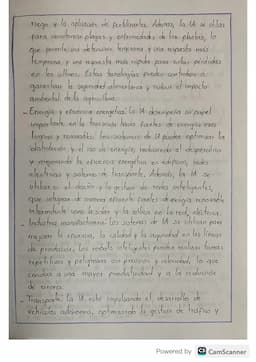 riego y la aplicación de fertilizantes. Además, la IA se utiliza
para monitorear plagas y enfermedades de las plantas, lo
que permite una detección temprana y una respuesta más
temprana y una respuesta más rápida para evitar pérdidas
en los cultivos. Estas tecnologías pueden contribuir a
garantizar la seguridad alimentaria y reducir el impacto
ambiental de la agricultura.
- Energía y eficiencia energética: La IA desempeña un papel
importante en la transición hacia fuentes de energía más
limpias y renovables. Los sistemas de IA pueden optimizar la
distribución y el uso de energía, reduciendo el desperdicio
y mejorando la eficiencia energética en edificios, redes
eléctricas y sistemas de transporte. Además, la IA se
utiliza en el diseño y la gestión de redes inteligentes,
que integran de manera eficiente fuentes de energía renovable
intermitente como la solar y la eólica en la red eléctrica.
- Industria manufacturera: Los sistemas de IA se utilizan para
mejorar la eficiencia, la calidad y la seguridad en las líneas
de producción. Los robots inteligentes pueden realizar tareas
repetitivas y peligrosas con precisión y velocidad, lo que
conduce a una mayor productividad y a la reducción
de errores.
- Transporte: La IA está impulsando el desarrollo de
vehículos autónomos, optimizando la gestión de tráfico y
Powered by CS CamScanner